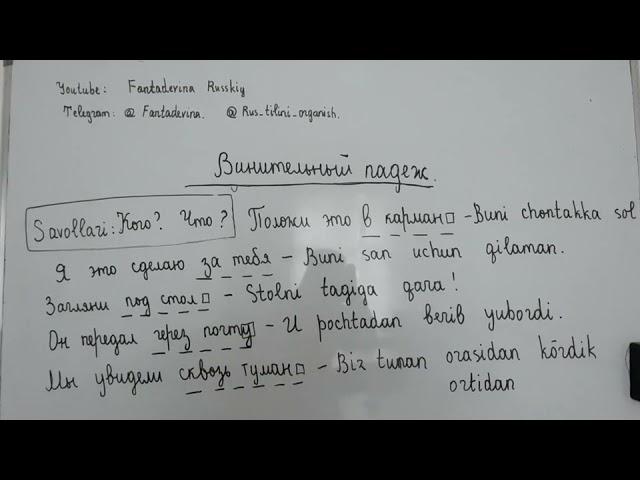 Youtube: Fantaderina Russkiy
Telegram: @ Fantaderina. @ Rus_tilini_organish.
Винительный падеж.
Savollari: Кого? Что? Положи это в карман□ - Buni chontakka sol
Я это сделаю за тебя - Buni san uchun qilaman.
Загляни под стол□ - Stolni tagiga qara!
Он передал через почту - U pochtadan berib yubordi.
Мы увидели сквозь туман□ - Biz tuman orasidan kõrdik
ortidan